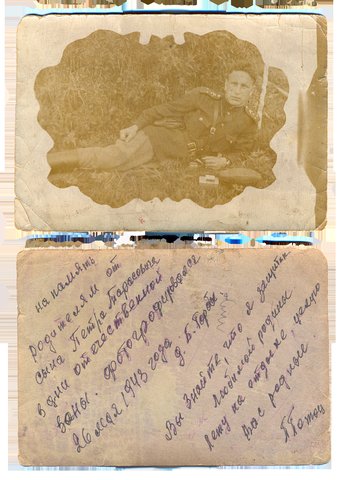 на память
родителям от
сына Петра Тарасовича
в дни отечественной
войны. фотографировался
26 мая 1943 года
Вы знайте что я защитник
любимой родины
лежу на отдыхе, целую
вас родные.